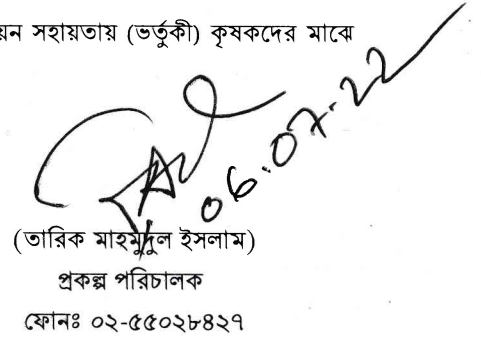 য়ন সহায়তায় (ভর্তুকী) কৃষকদের মাঝে
06.07.22
(তারিক মাহমুদুল ইসলাম)
প্রকল্প পরিচালক
ফোনঃ ০২-৫৫০২৮৪২৭